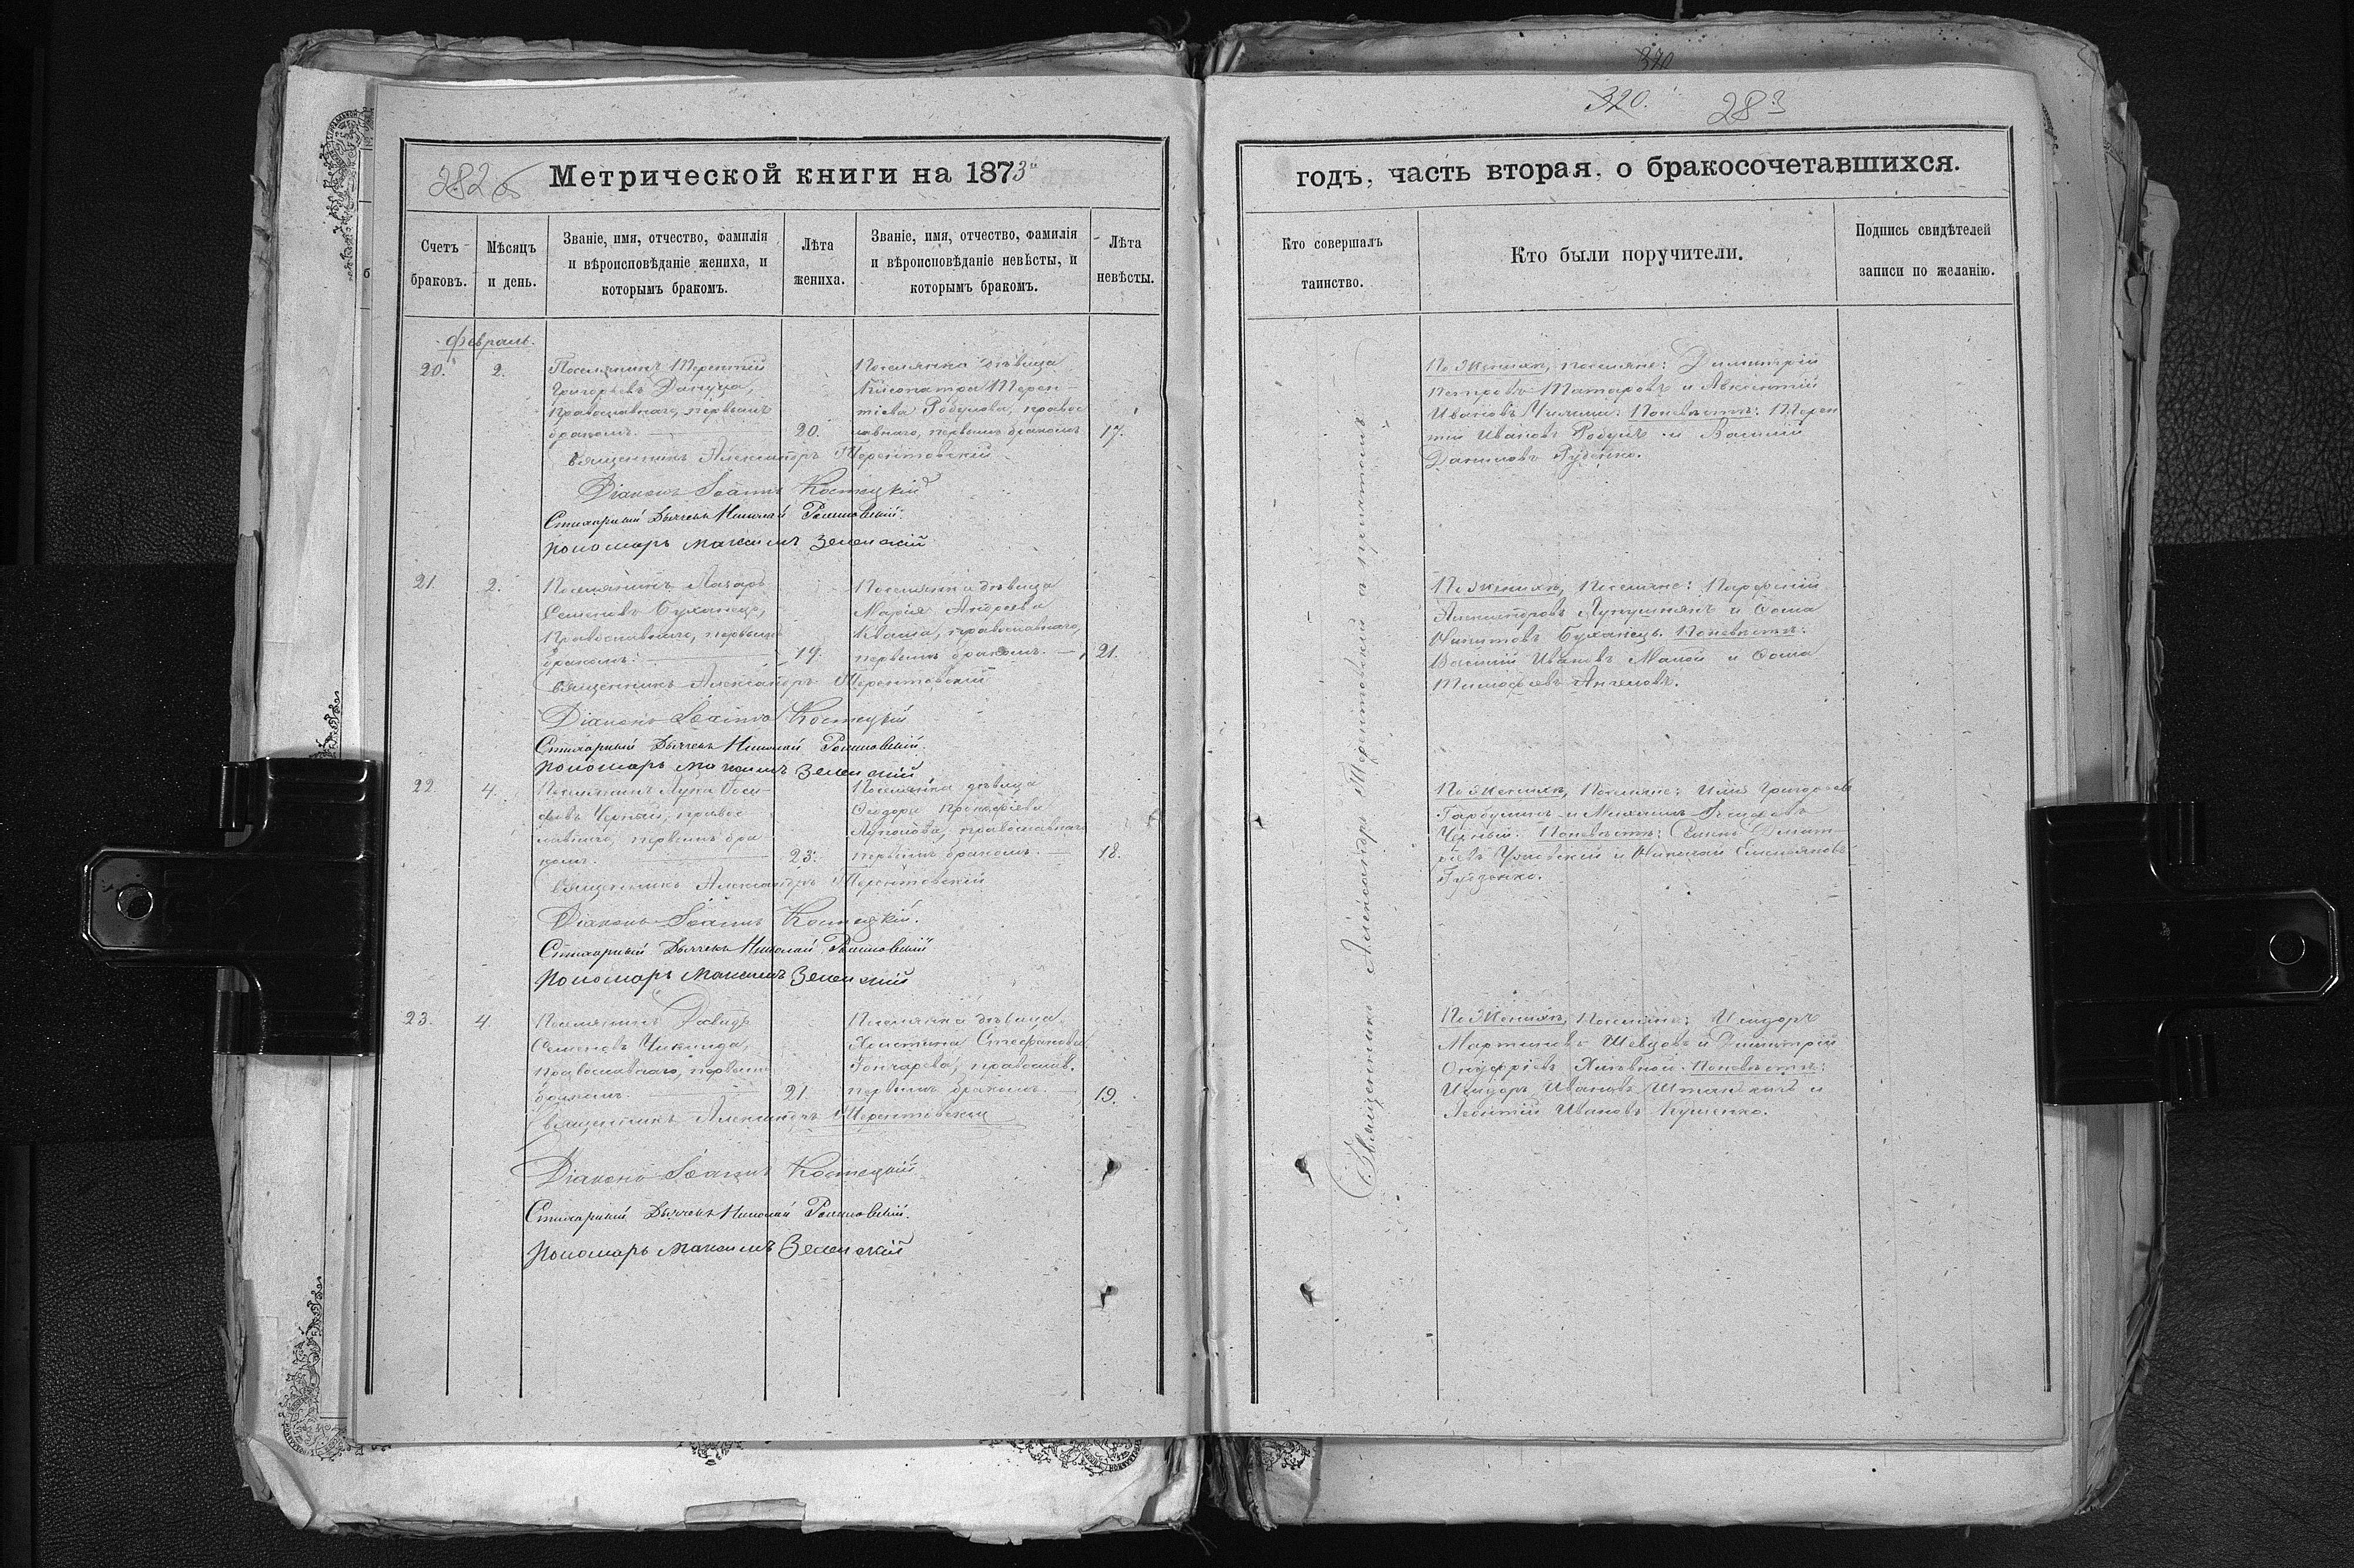 282 об
Метрической книги на 1873й
Счетъ браковъ.
Мѣсяцъ и день.
Званіе, имя, отчество, фамилія
и вѣроисповѣданіе жениха, и
которымъ бракомъ.
Лѣта жениха.
Званіе, имя, отчество, фамилія
и вѣроисповѣданіе невѣсты, и
которымъ бракомъ.
Лѣта невѣсты.
Февраль.
20. 2.
Поселянинъ Терентій
Григорьевъ
православнаго, первымъ
бракомъ. 20.
Поселянка дѣвица
Клеопатра Терен
тіева Робулова, правос
лавнаго, первымъ бракомъ 17.
Священникъ Александръ Терентовскій
Діаконъ Іоаннъ Костецкій
Стихарный Дьячекъ Николай
Пономарь Максимъ Зеленскій
21. 2.
Поселянинъ Лазарь
Семеновъ Буханецъ,
православнаго, первымъ
бракомъ. 19.
Поселянка дѣвица
Марія Андреева
Кваша, православнаго,
первымъ бракомъ. 21.
Священникъ Александръ Терентовскій
Діаконъ Іоаннъ Костецкій
Стихарный Дьячекъ Николай
Пономарь Максимъ Зеленскій
22. 4.
Поселянинъ Лука Оси-
фовъ Черный, правос
лавнаго, первымъ бра
комъ. 23.
Поселянка дѣвица
Феодора Прокофіева
православнаго
первымъ бракомъ. 18.
Священникъ Александръ Терентовскій
Діаконъ Іоаннъ Костецкій.
Стихарный Дьячекъ Николай
Пономарь Максимъ Зеленскій
23. 4.
Поселянинъ Давидъ
Семеновъ
православнаго, первымъ
бракомъ. 21.
Поселянка дѣвица
Христина Стефанова
Гончарева, православ.
первымъ бракомъ. 19.
Священникъ Александръ Терентовскій
Діаконъ Іоаннъ Костецкій
Стихарный Дьячекъ Николай
Пономарь Максимъ Зеленскій
370
320. 283
годъ, часть вторая, о бракосочетавшихся.
Кто совершалъ
таинство.
Кто были поручители.
Подпись свидѣтелей
записи по желанію.
Священникъ Александръ Терентовскій с причтомъ
По Женихѣ, поселяне: Димитрій
Петровъ Татаровъ и Авксентій
Ивановъ По невѣстѣ: Терен
тій Ивановъ Робулъ и Василій
Даниловъ Руденко.
По Женихѣ, Поселяне: Порфирій
Александровъ и Фома
Никитовъ Буханецъ. По невѣстѣ:
Василій Ивановъ Малой и Фома
Тимофеевъ Ангеловъ.
По Женихѣ, Поселяне: Илія Григорьевъ
и Михаилъ
Черный. По невѣстѣ:
и Николай Емельяновъ
По Женихѣ, Поселяне: Исидоръ
Мартиновъ Шевцовъ и Димитрій
Онуфріевъ По невѣстѣ:
Исидоръ Ивановъ и
Леонтій Ивановъ Кушенко.